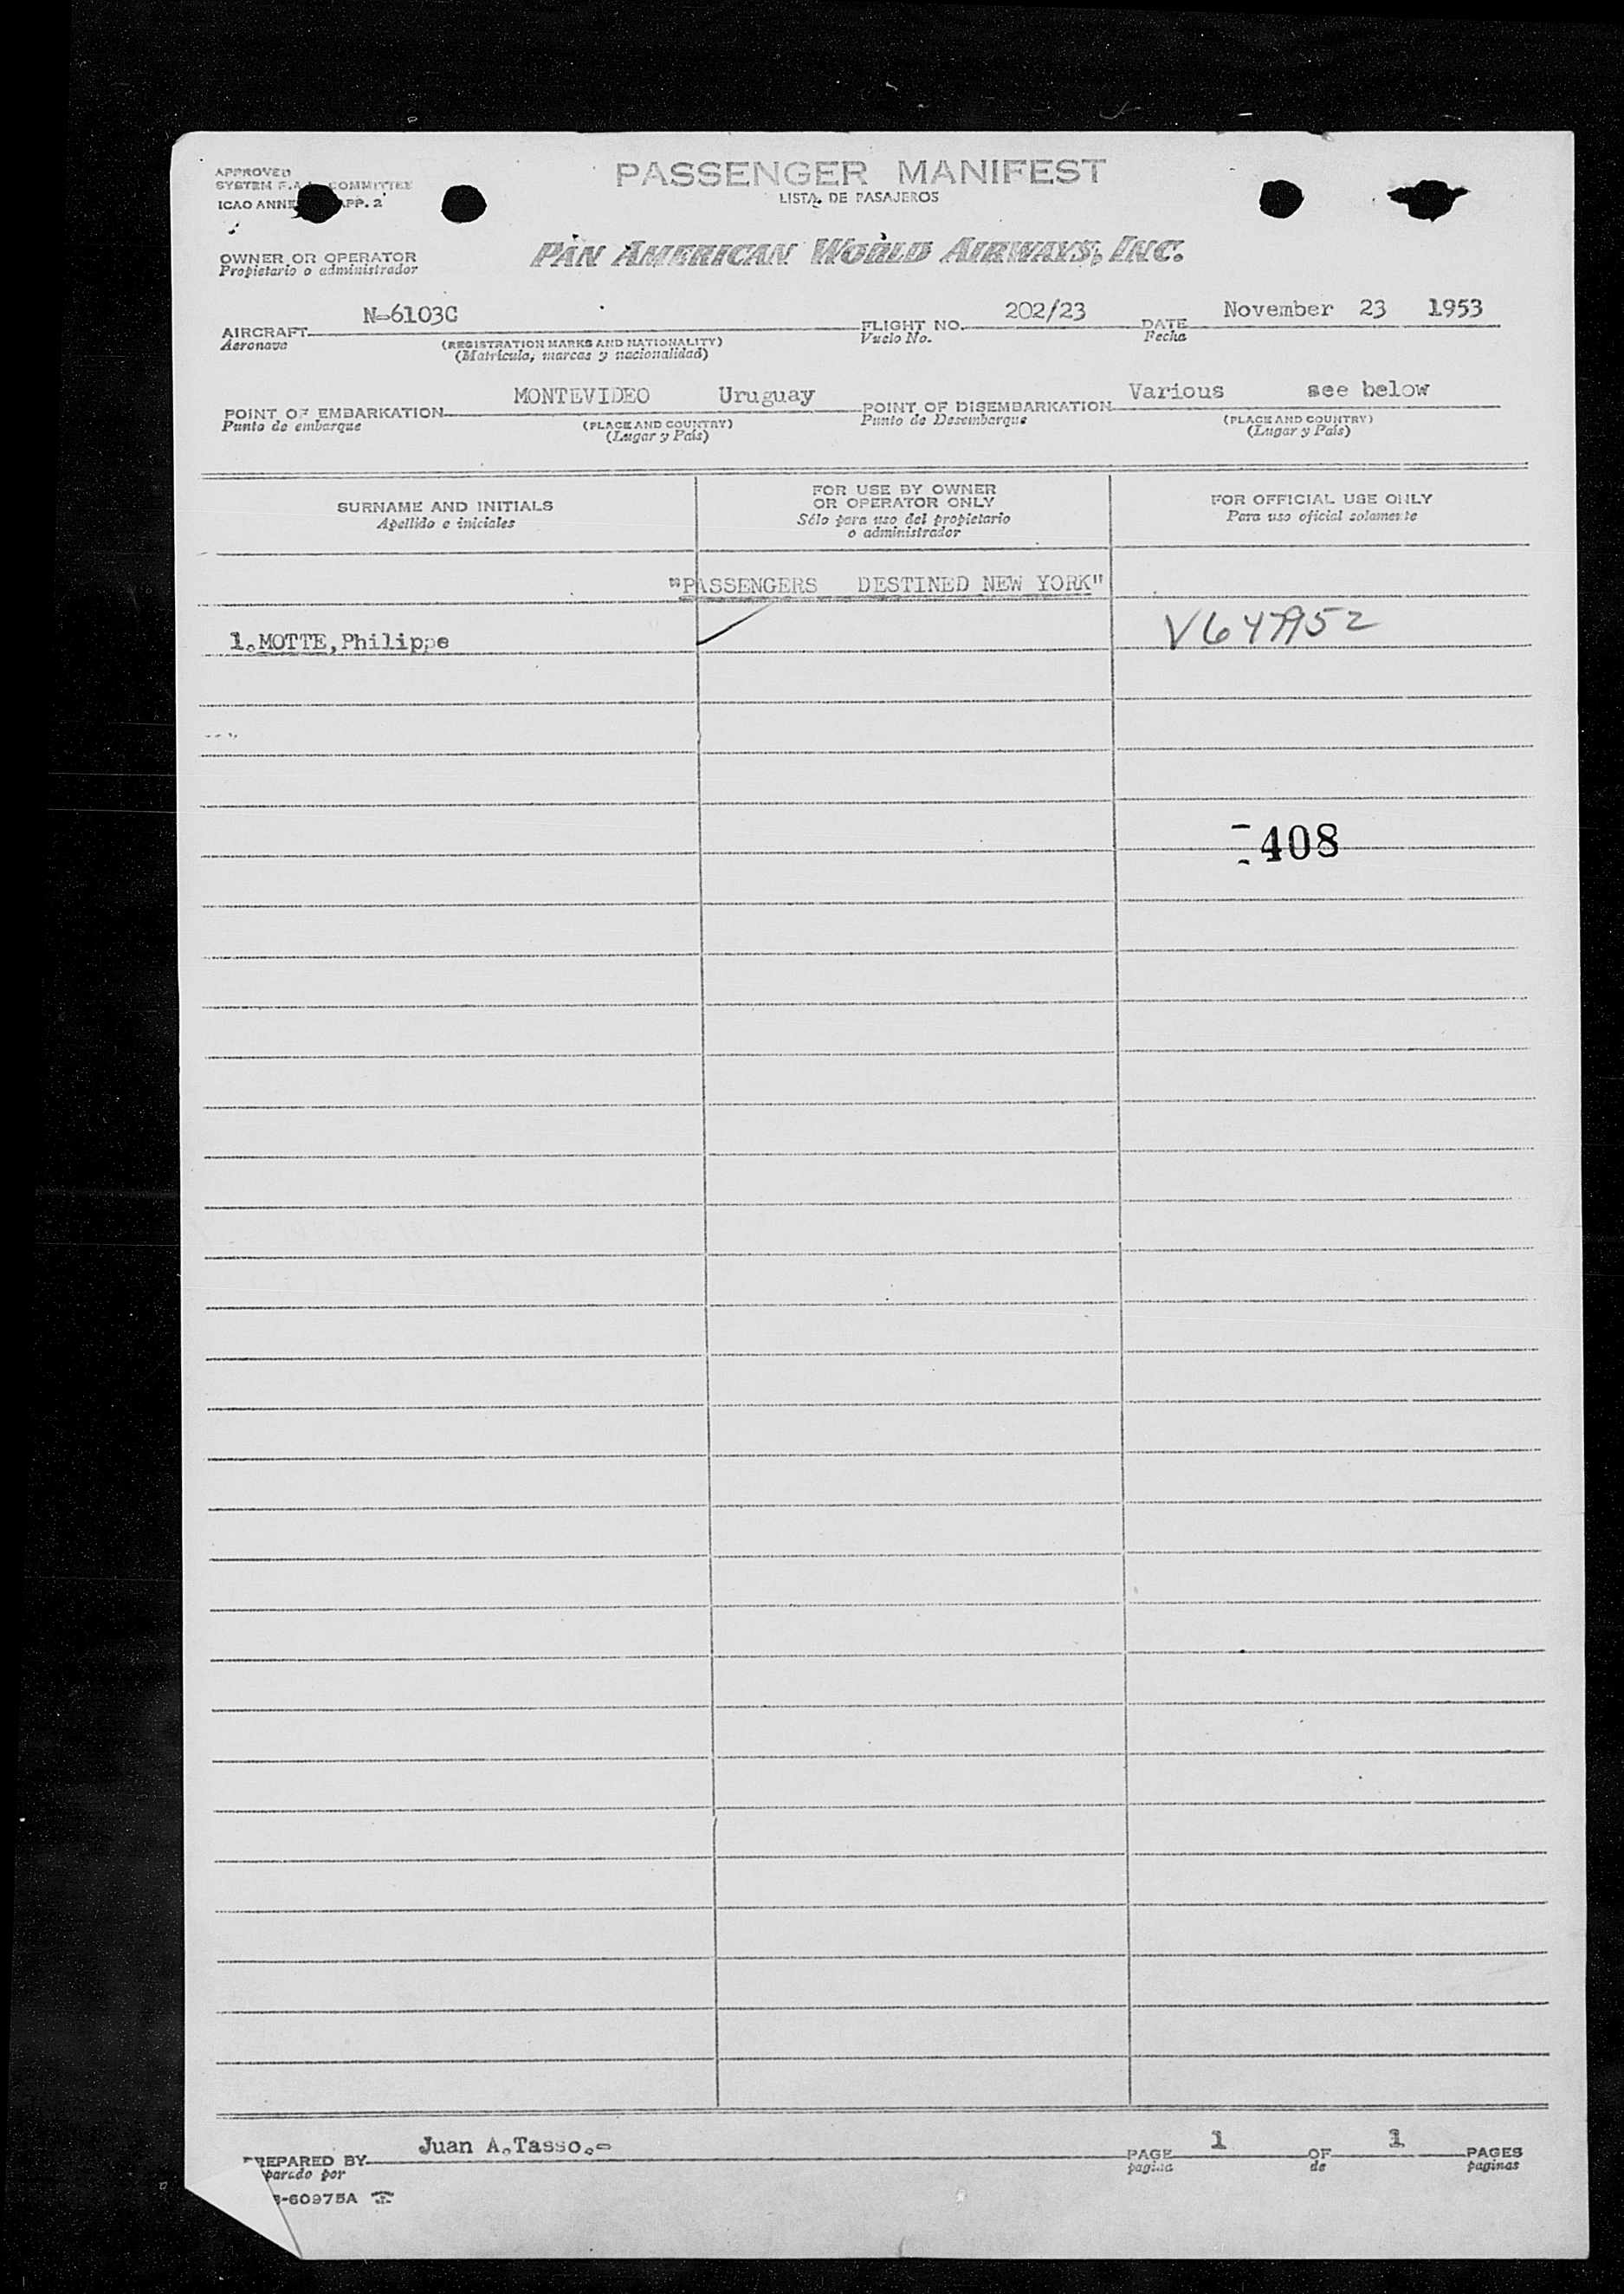 APPROVED
SYSTEM F.A.L. COMMITTEE
ICAO ANNE APP. 2
PASSENGER MANIFEST
LISTA DE PASAJEROS
OWNER OR OPERATOR
Propietario o administrador
PAN AMERICAN WORLD AIRWAYS, INC.
AIRCRAFT N-6103C FLIGHT NO. 202/23 DATE November 23 1953
Aeronave (REGISTRATION MARKS AND NATIONALITY) Vuelo No. Fecha
(Matrícula, marcas y nacionalidad)
POINT OF EMBARKATION MONTEVIDEO Uruguay POINT OF DISEMBARKATION Various see below
Punto de embarque (PLACE AND COUNTRY) Punto de Desembarque (PLACE AND COUNTRY)
(Lugar y País) (Lugar y País)
SURNAME AND INITIALS
Apellido e iniciales
FOR USE BY OWNER
OR OPERATOR ONLY
Sólo para uso del propietario
o administrador
FOR OFFICIAL USE ONLY
Para uso oficial solamente
"PASSENGERS DESTINED NEW YORK"
1.MOTTE,Philippe
408
PREPARED BY Juan A.Tasso.- PAGE 1 OF 1 PAGES
parado por pagina de paginas
-60975A